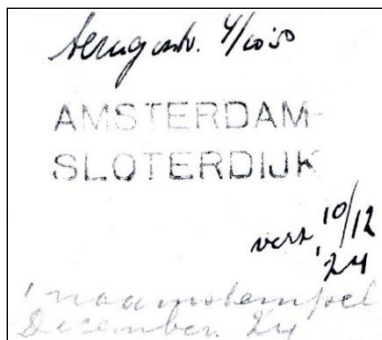 terugontv. 4/10 '30
AMSTERDAM-
SLOTERDIJK
verz 10/12
'24
1 naamstempel
December. 24